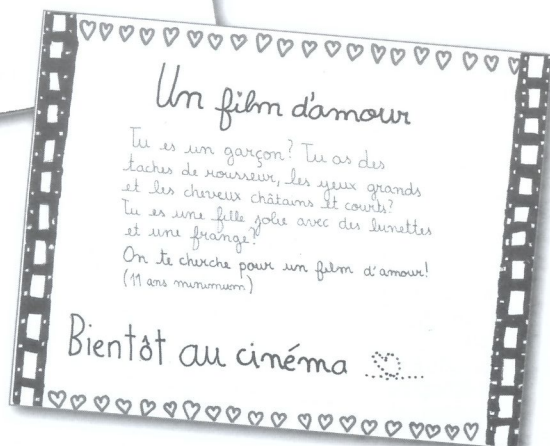 Un film d'amour
Tu es un garçon? Tu as des
taches de rousseur, les yeux grands
et les cheveux châtains et courts?
Tu es une fille jolie avec des lunettes
et une frange?
On te cherche pour un film d'amour!
(11 ans minimum)
Bientôt au cinéma